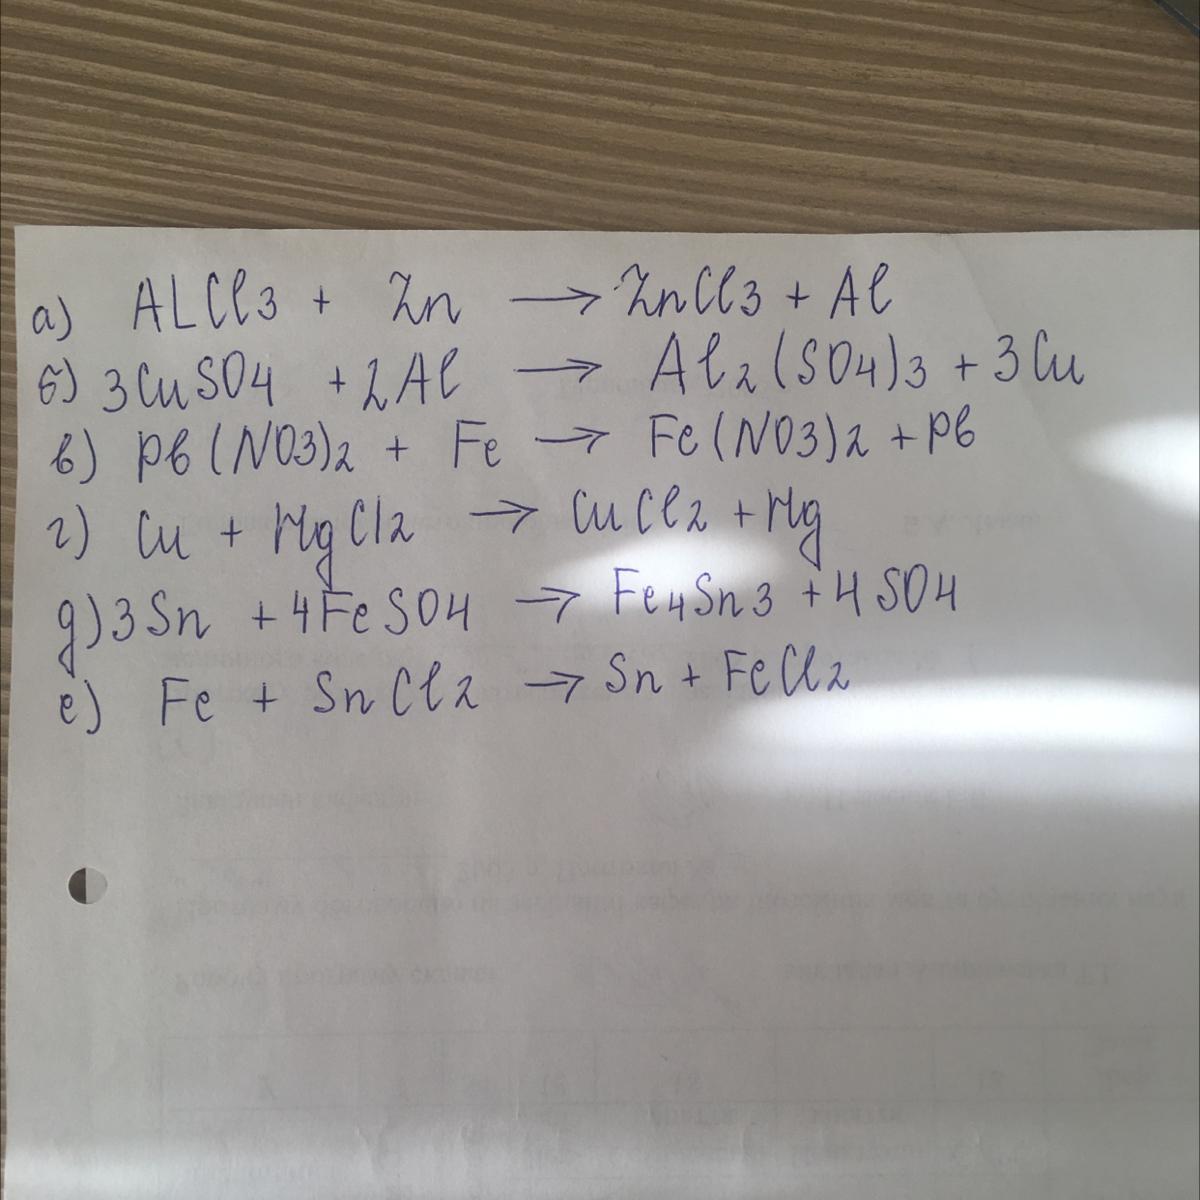 а) ALCl3 + Zn → ZnCl3 + Al
б) 3CuSO4 + 2Al → Al2(SO4)3 + 3Cu
в) Pb(NO3)2 + Fe → Fe(NO3)2 + Pb
г) Cu + MgCl2 → CuCl2 + Mg
д) 3Sn + 4FeSO4 → Fe4Sn3 + 4SO4
е) Fe + SnCl2 → Sn + FeCl2